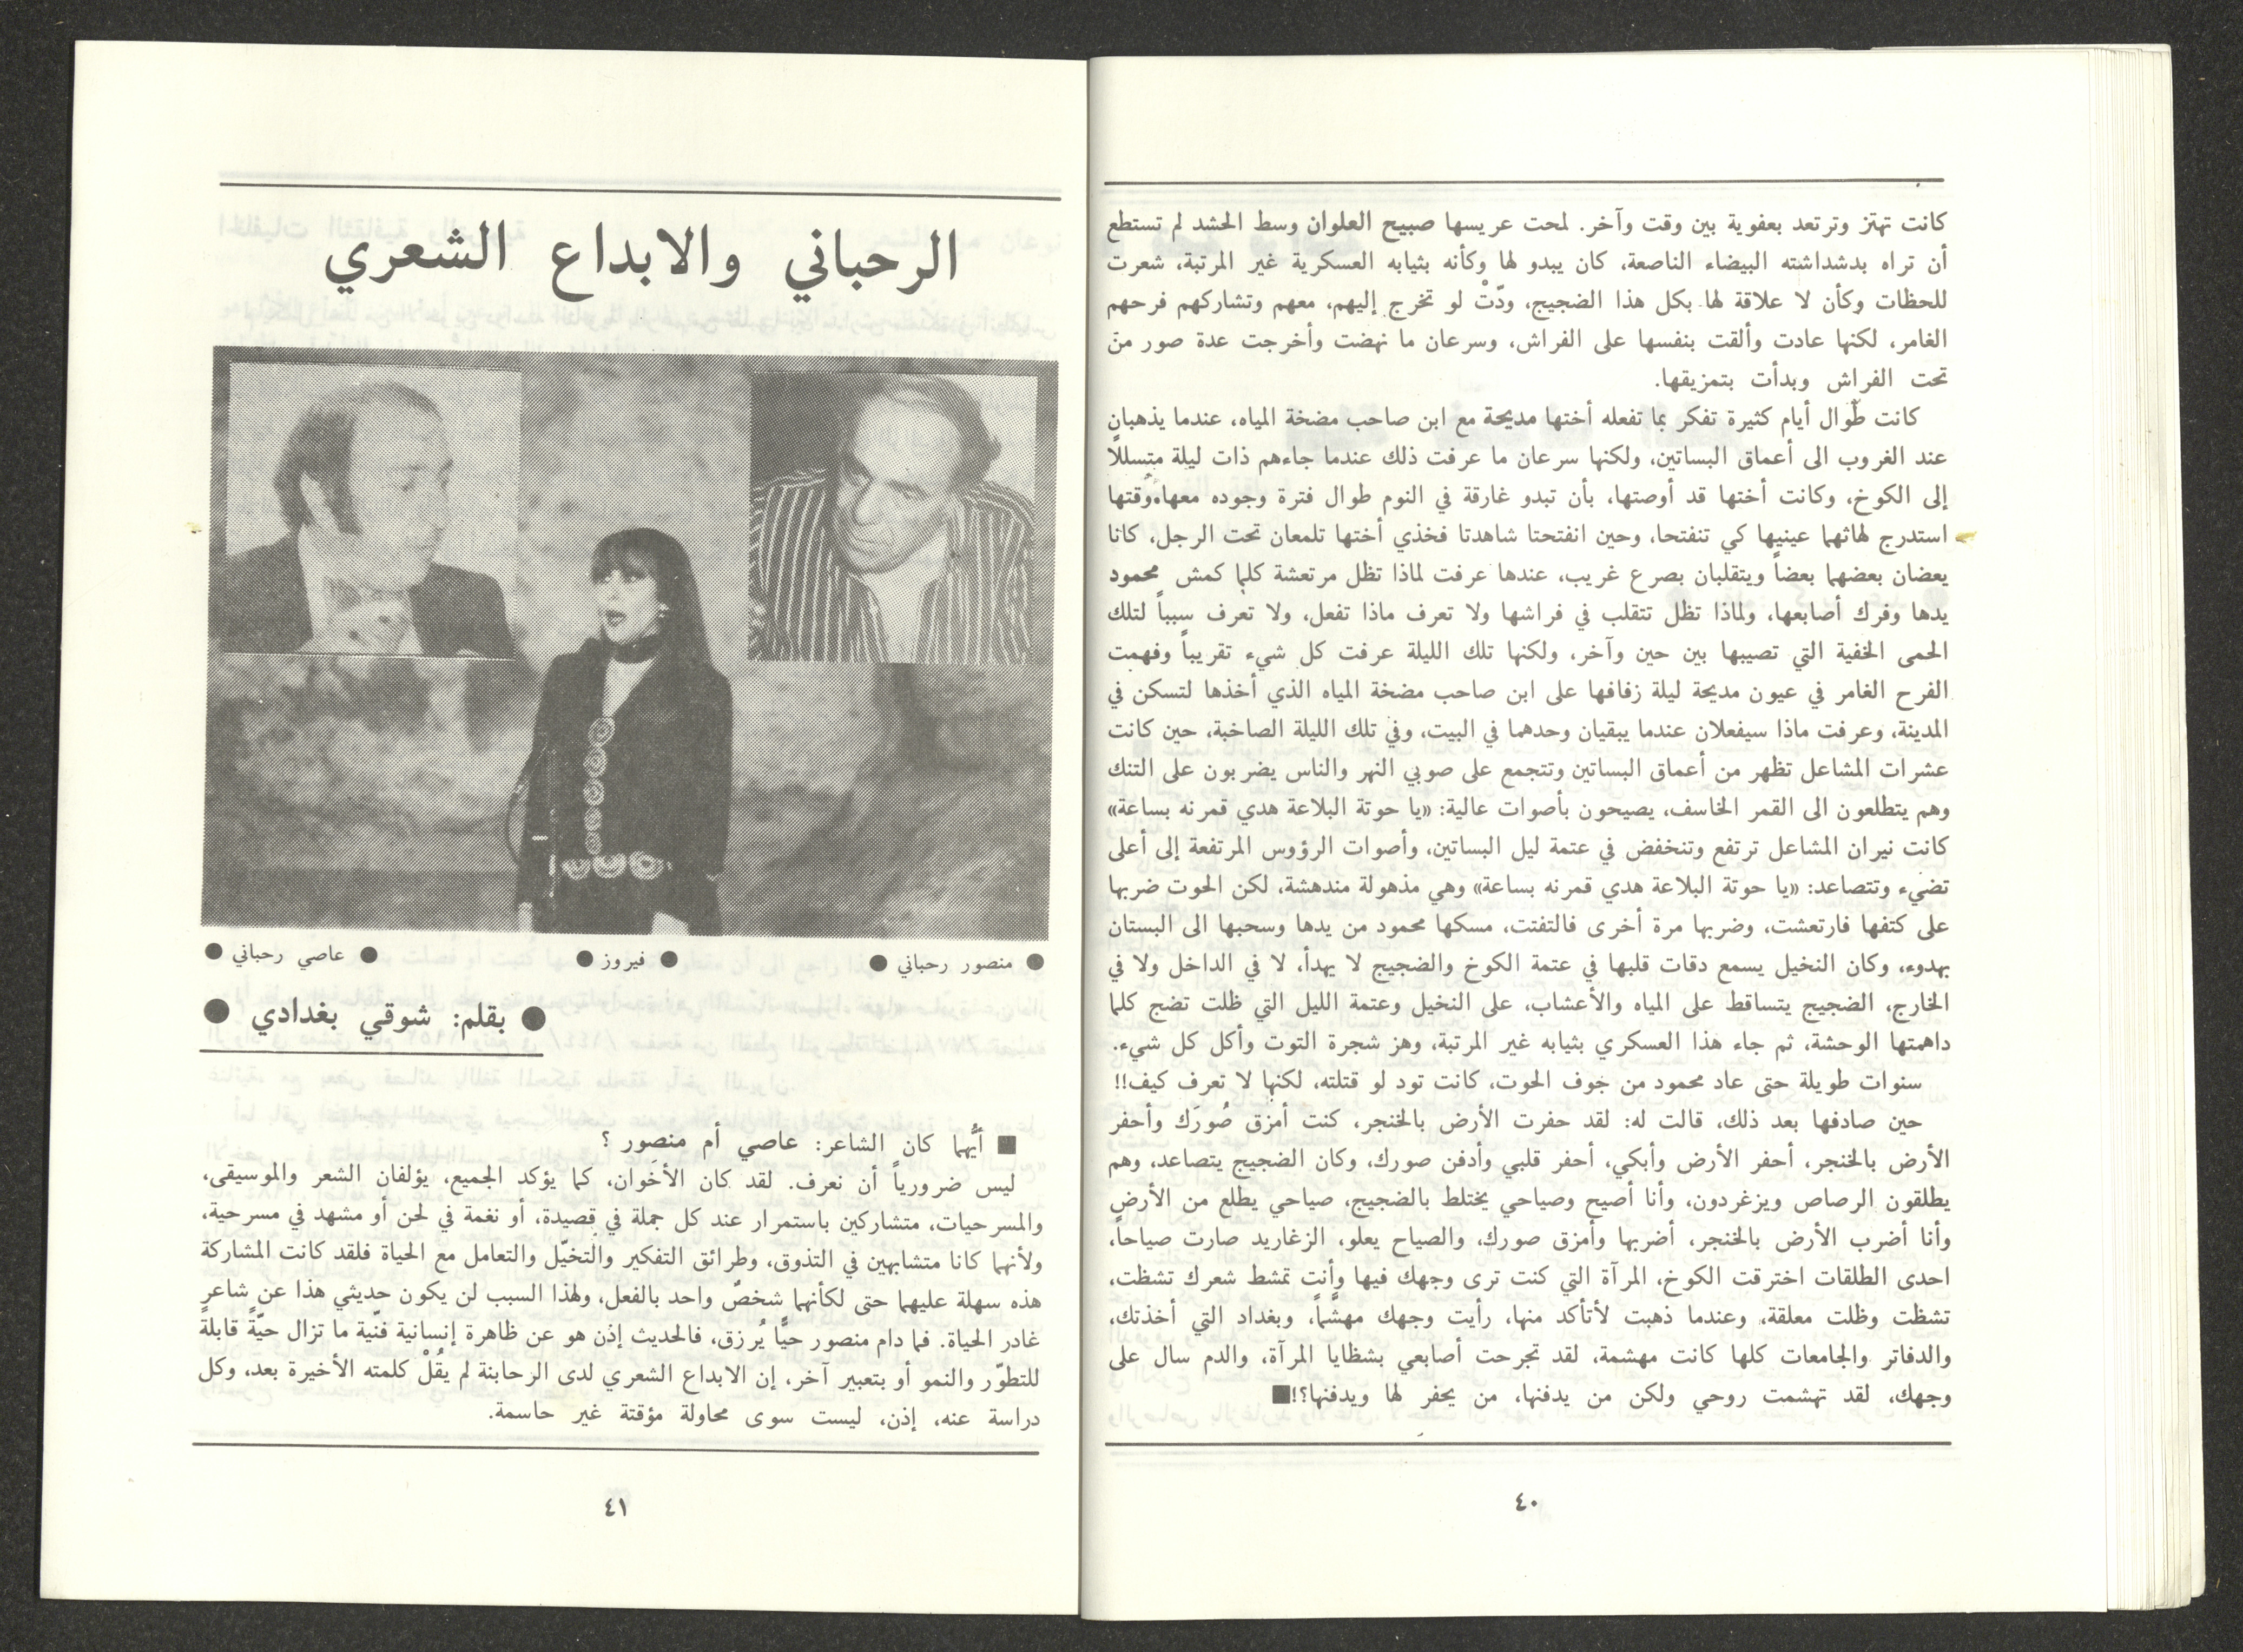 كانت تهتز وترتعد بعفوية بين وقت وآخر. لمحت عريسها صبيح العلوان وسط الحشد لم تستطع
أن تراه بدشداشته البيضاء الناصعة، كان يبدو لها وكأنه بثيابه العسكرية غير المرتبة، شعرت
للحظات وكأن لا علاقة لها بكل هذا الضجيج، ودّتْ لو تخرج إليهم، معهم وتشاركهم فرحهم
الغامر، لكنها عادت وألقت بنفسها على الفراش، وسرعان ما نهضت وأخرجت عدة صور من
تحت الفراش وبدأت بتمزيقها.
كانت طوال أيام كثيرة تفكر بما تفعله أختها مديحة مع ابن صاحب مضخة المياه، عندما يذهبان
عند الغروب الى أعماق البساتين، ولكنها سرعان ما عرفت ذلك عندما جاءهم ذات ليلة متسللاً
إلى الكوخ، وكانت أختها قد أوصتها، بأن تبدو غارقة في النوم طوال فترة وجوده معها، وقتها
استدرج لهاثهما عينيها كي تنفتحا، وحين انفتحتا شاهدتا فخذي أختها تلمعان تحت الرجل، كانا
يعضان بعضهما بعضاً ويتقلبان بصرع غريب، عندها عرفت لماذا تظل مرتعشة كلما كمش محمود
يدها وفرك أصابعها، ولماذا تظل تتقلب في فراشها ولا تعرف ماذا تفعل، ولا تعرف سبباً لتلك
الحمى الخفية التي تصيبها بين حين وآخر، ولكنها تلك الليلة عرفت كل شيء تقريباً وفهمت
الفرح الغامر في عيون مديحة ليلة زفافها على ابن صاحب مضخة المياه الذي أخذها لتسكن في
المدينة، وعرفت ماذا سيفعلان عندما يبقيان وحدهما في البيت، وفي تلك الليلة الصاخبة، حين كانت
عشرات المشاعل تظهر من أعماق البساتين وتتجمع على صوبي النهر والناس يضربون على التنك
وهم يتطلعون الى القمر الخاسف، يصيحون بأصوات عالية: «يا حوتة البلاعة هدي قمرنه بساعة»
كانت نيران المشاعل ترتفع وتنخفض في عتمة ليل البساتين، وأصوات الرؤوس المرتفعة إلى أعلى
تضيء وتتصاعد: «يا حوتة البلاعة هدي قمرنه بساعة» وهي مذهولة مندهشة، لكن الحوت ضربها
على كتفها فارتعشت، وضربها مرة أخرى فالتفتت، مسكها محمود من يدها وسحبها الى البستان
بهدوء، وكان النخيل يسمع دقات قلبها في عتمة الكوخ والضجيج لا يهدأ، لا في الداخل ولا في
الخارج، الضجيج يتساقط على المياه والأعشاب، على النخيل وعتمة الليل التي ظلت تضج كلما
داهمتها الوحشة، ثم جاء هذا العسكري بثيابه غير المرتبة، وهز شجرة التوت وأكل كل شيء.
سنوات طويلة حتى عاد محمود من جوف الحوت، كانت تود لو قتلته، لكنها لا تعرف كيف!!
حين صادفها بعد ذلك، قالت له: لقد حفرت الأرض بالخنجر، كنت أمزق صُورَك وأحفر
الأرض بالخنجر، أحفر الأرض وأبكي، أحفر قلبي وأدفن صورك، وكان الضجيج يتصاعد، وهم
يطلقون الرصاص ويزغردون، وأنا أصيح وصياحي يختلط بالضجيج، صياحي يطلع من الأرض
وأنا أضرب الأرض بالخنجر، أضربها وأمزق صورك، والصياح يعلو، الزغاريد صارت صياحاً،
احدى الطلقات اخترقت الكوخ، المرآة التي كنت ترى وجهك فيها وأنت تمشط شعرك تشظت،
تشظت وظلت معلقة، وعندما ذهبت لأتأكد منها، رأيت وجهك مهشّماً، وبغداد التي أخذتك،
والدفاتر والجامعات كلها كانت مهشمة، لقد تجرحت أصابعي بشظايا المرآة، والدم سال على
وجهك، لقد تهشمت روحي ولكن من يدفنها، من يحفر لها ويدفنها؟!■
٤٠
الرحباني والابداع الشعري
● منصور رحباني ● ● فيروز ● ● عاصي رحباني ●
● بقلم: شوقي بغدادي ●
■ أيُّهما كان الشاعر: عاصي أم منصور ؟
ليس ضرورياً أن نعرف. لقد كان الأخَوان، كما يؤكد الجميع، يؤلفان الشعر والموسيقى،
والمسرحيات، متشاركين باستمرار عند كل جملة في قصيدة، أو نغمة في لحن أو مشهد في مسرحية،
ولأنهما كانا متشابهين في التذوق، وطرائق التفكير والتخيّل والتعامل مع الحياة فلقد كانت المشاركة
هذه سهلة عليهما حتى لكأنهما شخصٌ واحد بالفعل، ولهذا السبب لن يكون حديثي هذا عن شاعرٍ
غادر الحياة. فما دام منصور حيًّا يُرزق، فالحديث إذن هو عن ظاهرة إنسانية فنّية ما تزال حيّةً قابلةً
للتطوّر والنمو أو بتعبير آخر، إن الابداع الشعري لدى الرحابنة لم يقُلْ كلمته الأخيرة بعد، وكل
دراسة عنه، إذن، ليست سوى محاولة مؤقتة غير حاسمة.
٤١